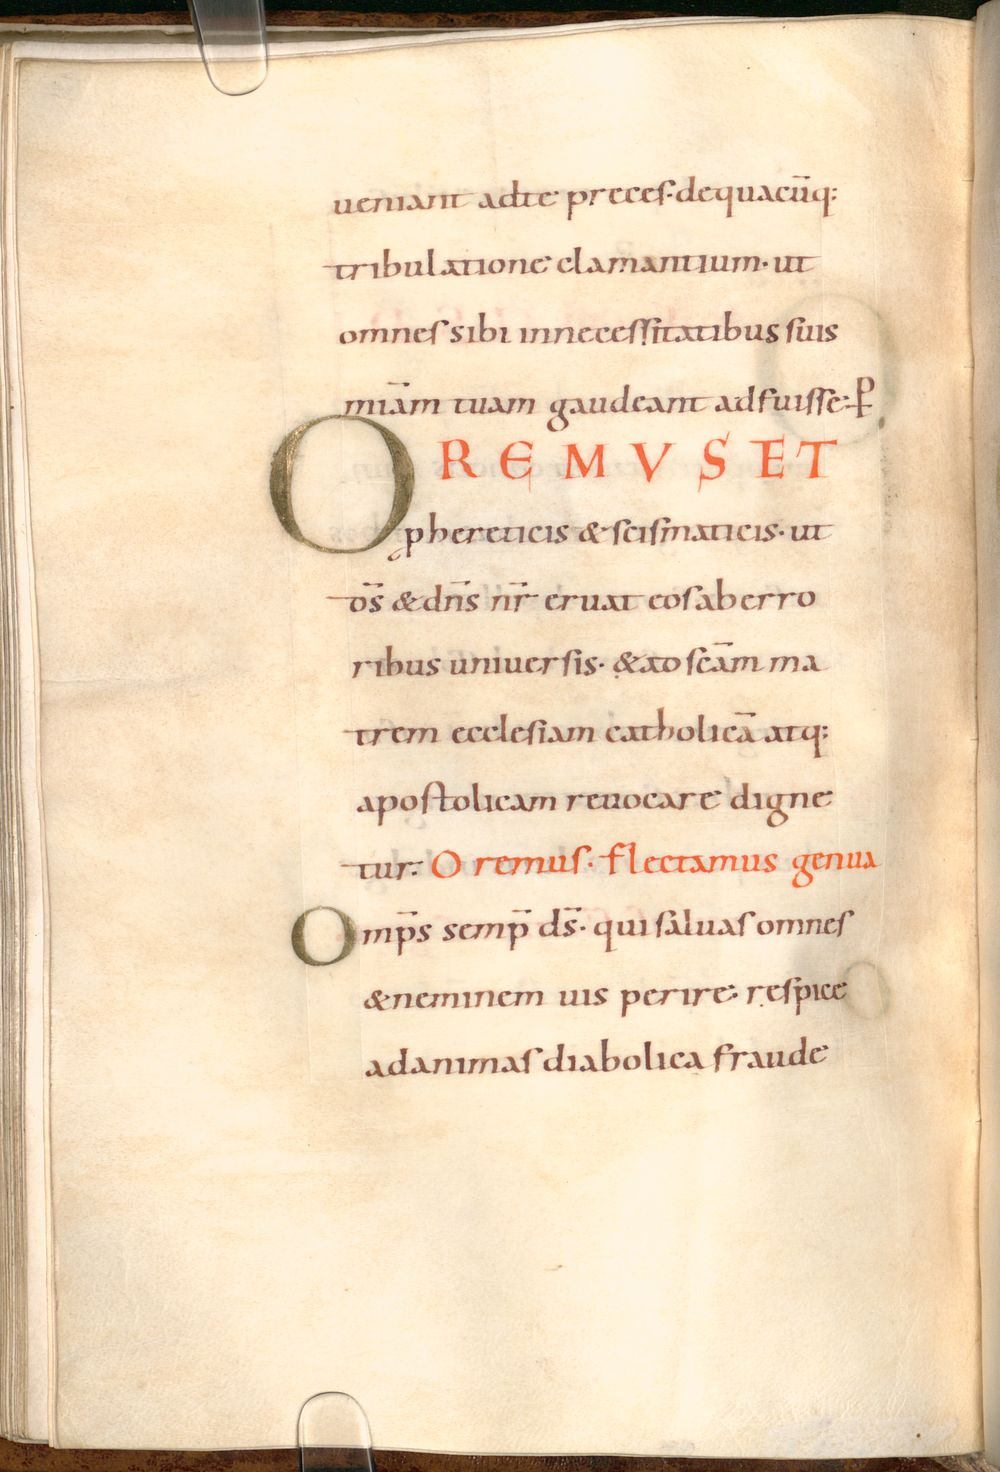 ueniant adte preces· dequacūq:
tribulatione clamantium· ut
omnes sibi innecessitatibus suis
miām tuam gaudeant adfuisse· ꝑ
OREMVS ET
ꝓ hereticis & scismaticis· ut
os̄ & dn̄s nr̄ eruat eos aberro
ribus uniuersis· & ad scām ma
trem ecclesiam catholicā atq:
apostolicam reuocare digne
tur· Oremus· flectamus genua
Omp̄s semp̄ ds̄· qui saluas omnes
& neminem uis perire· respice
ad animas diabolica fraude